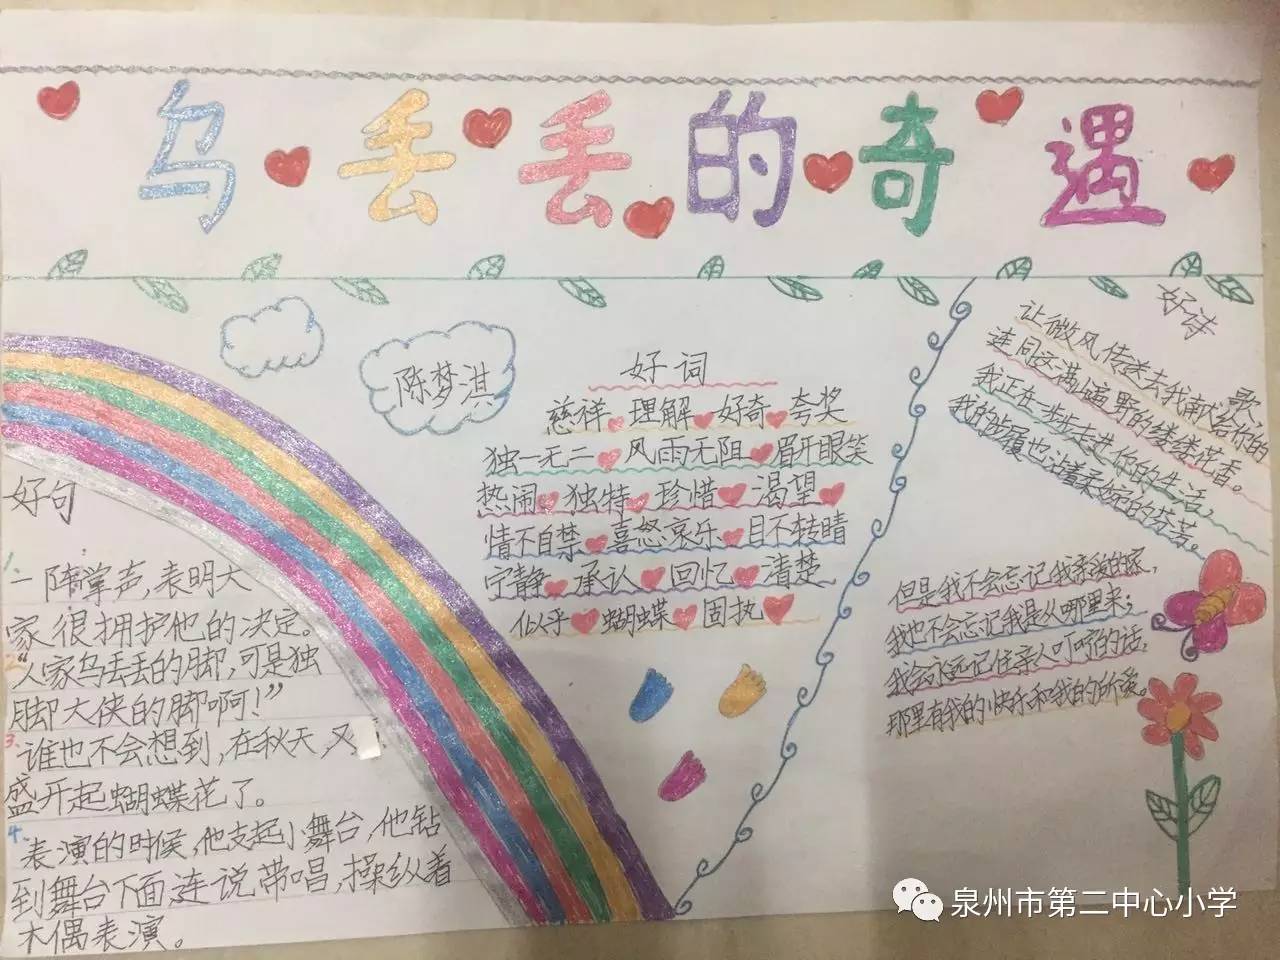 乌丢丢的奇遇
陈梦淇
好句
1.一阵掌声,表明大
家很拥护他的决定。
2.“人家乌丢丢的脚,可是独
脚大侠的脚啊!”
3.谁也不会想到,在秋天,又
盛开起蝴蝶花了。
4.表演的时候,他支起小舞台,他钻
到舞台下面,连说带唱,操纵着
木偶表演。
好词
慈祥 理解 好奇 夸奖
独一无二 风雨无阻 眉开眼笑
热闹 独特 珍惜 渴望
情不自禁 喜怒哀乐 目不转睛
宁静 承认 回忆 清楚
似乎 蝴蝶 固执
好诗
让微风传送去我献给你的歌,
连同这满山遍野的缕缕花香。
我正在一步步走进你的生活,
我的步履也沾着柔如定的芬芳。
但是我不会忘记我亲爱的家,
我也不会忘记我是从哪里来;
我会永远记住亲人叮咛的话,
那里有我的快乐和我的所爱。
泉州市第二中心小学